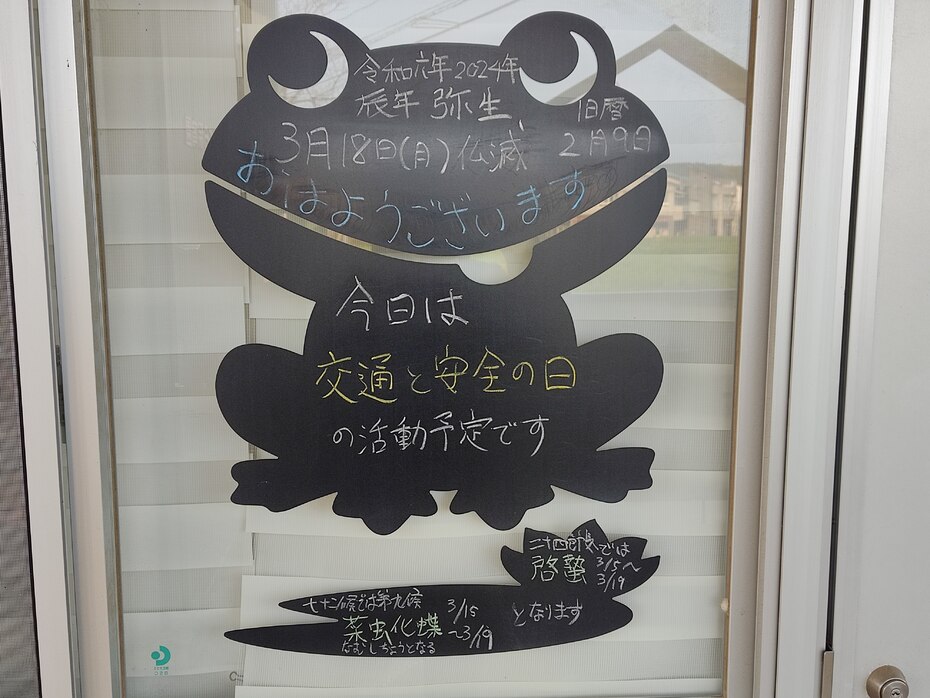 令和六年2024年
辰年 弥生 旧暦
3月18日(月)仏滅 2月9日
おはようございます
今日は
交通と安全の日
の活動予定です
二十四節気では
啓蟄 3/5〜3/19
七十二候では第九候
菜虫化蝶 3/15〜3/19
なむしちょうとなる
となります